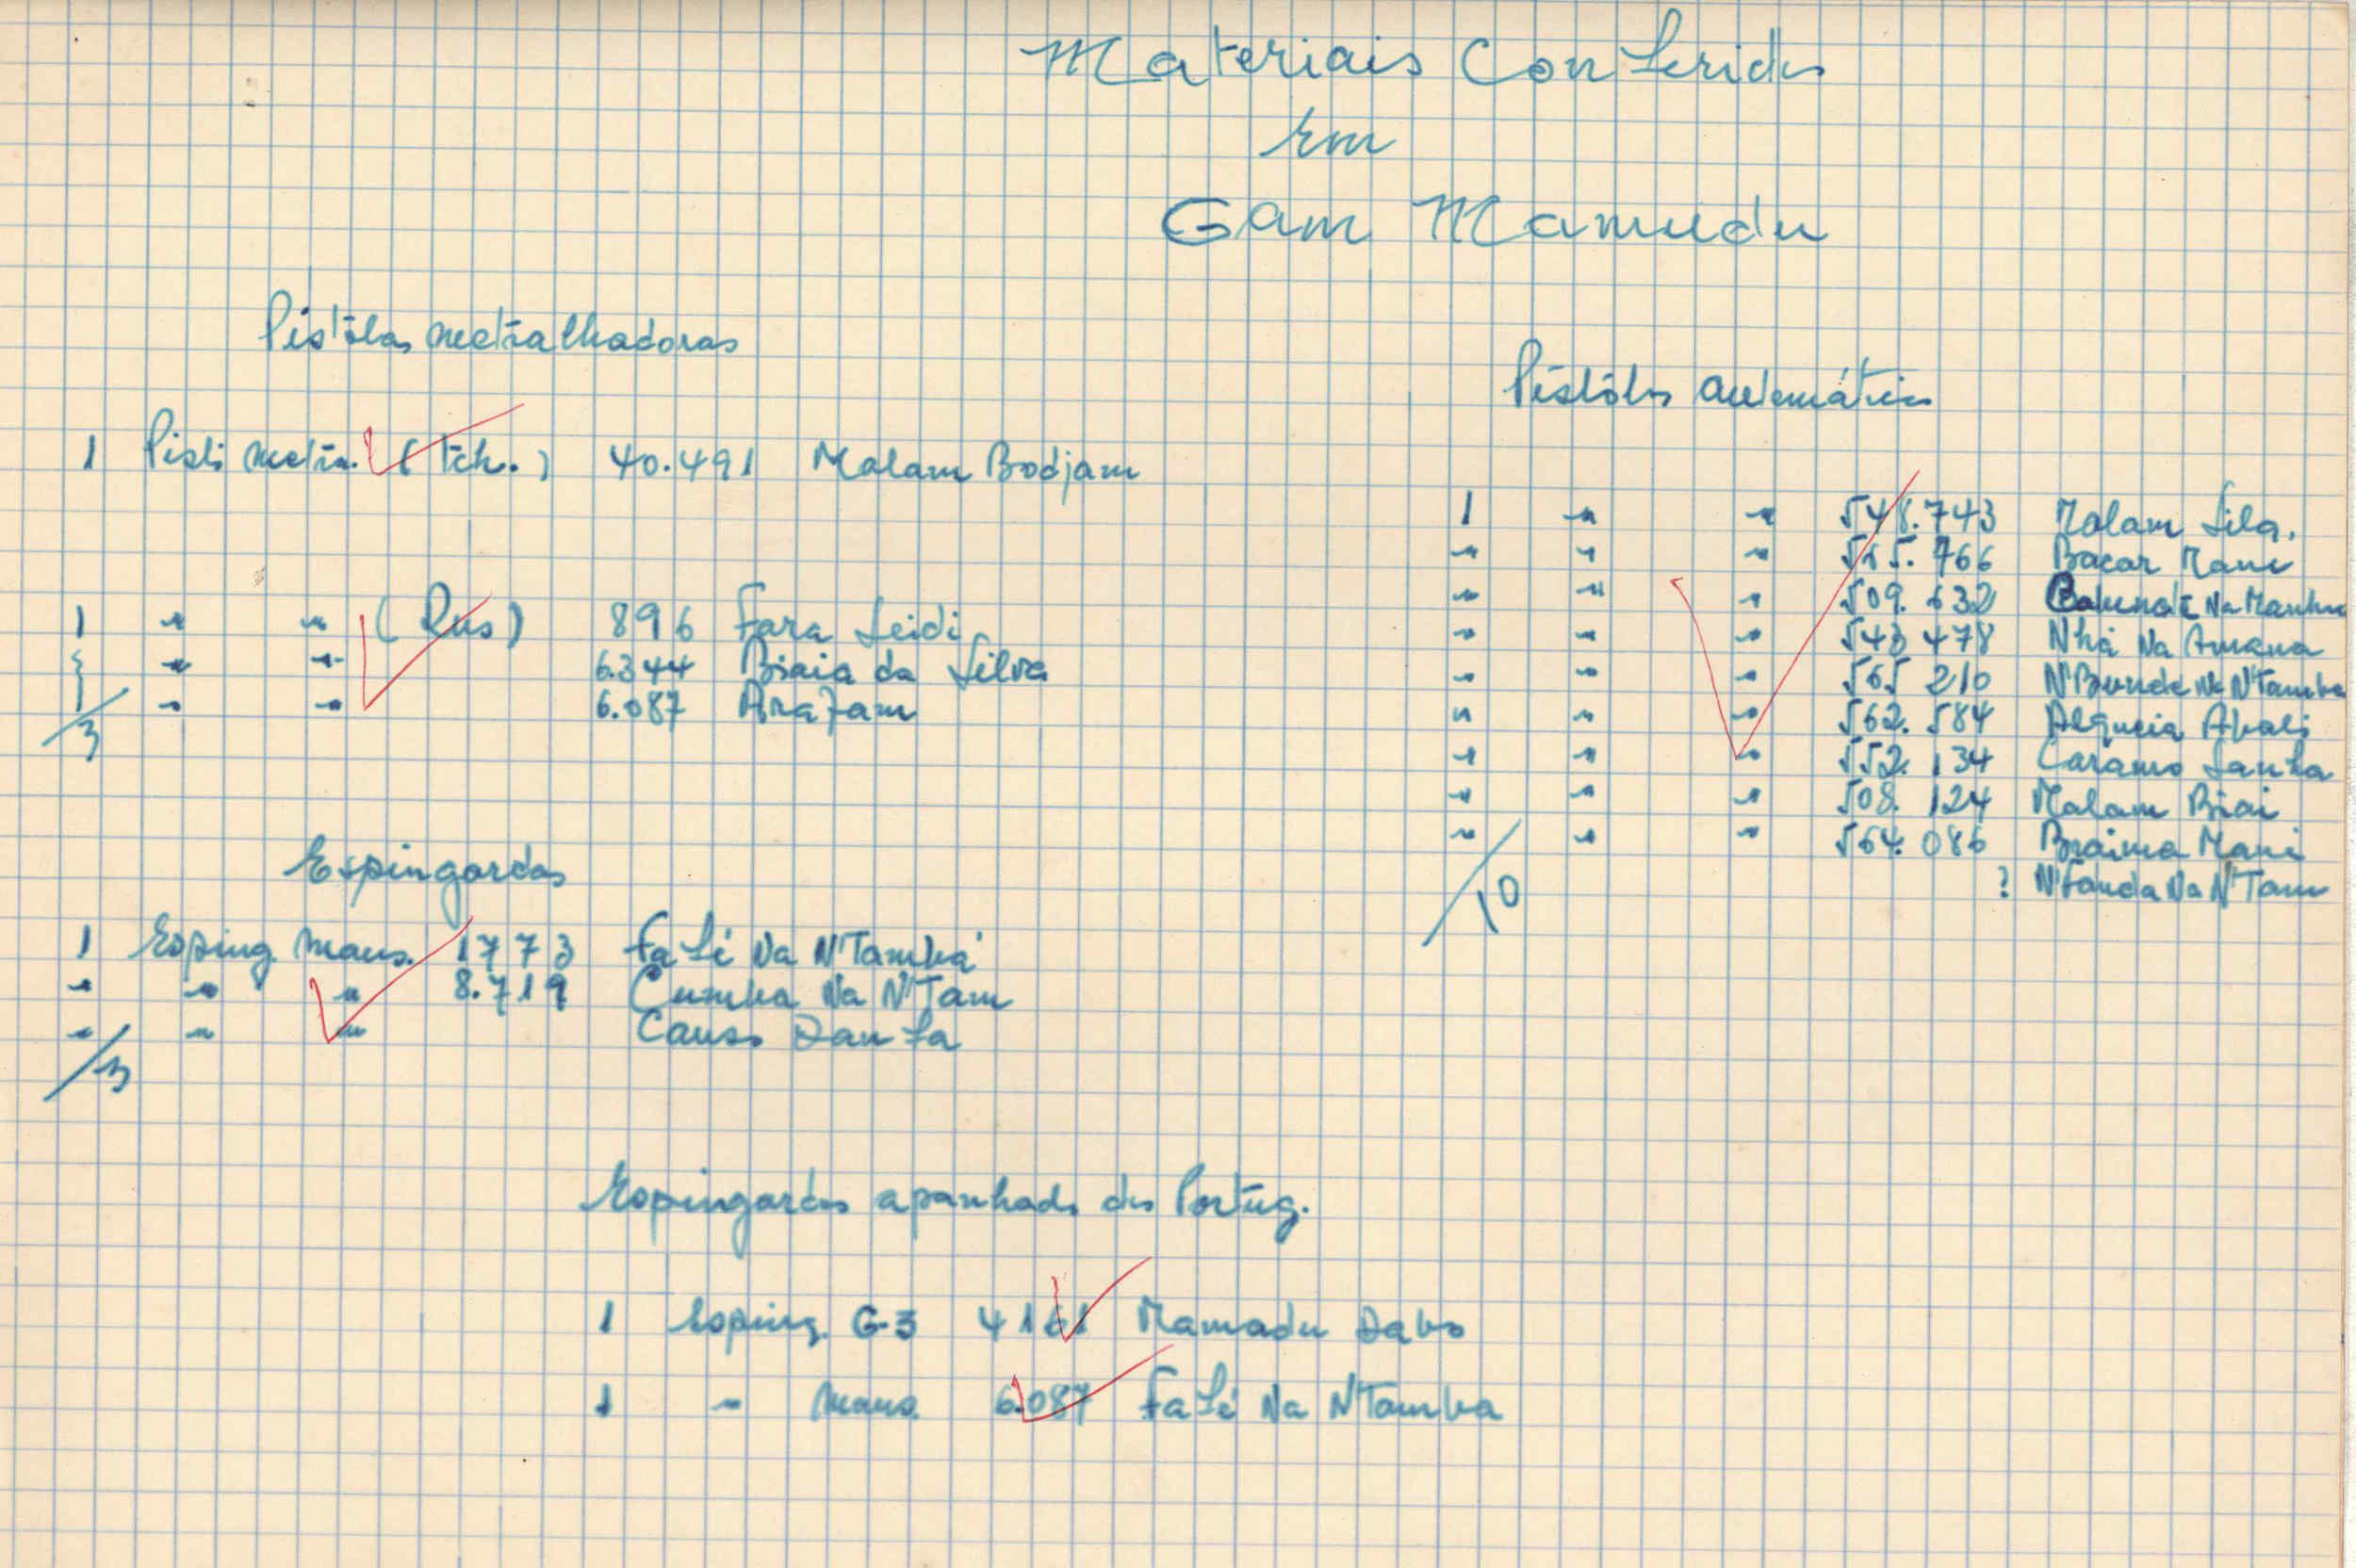 Materiais Conferidos
em
Gam Mamudu
Pistolas metralhadoras
1 Pist. metra. (Tch.) 40.491 Malam Bodjam
1 " " (Rus) 896 Fara Seidi
1 " " 6.344 Biaia da Silva
1 " " 6.087 Arafam
3
Espingardas
1 Esping. Maus. 1773 Fa Sé Na N'Tamba
" " " 8.719 Cumba Na N'Tam
" " " Causso Danfa
3
Pistolas automáticas
1 " " 548.743 Malam Sila.
" " " 555.766 Bacar Mane
" " " 509.632 Na
" " " 543 478 Nhá Na
" " " 565 210 N'Bunde Na N'Tamba
" " " 562.584 Alqueia
" " " 552.134 Caramo Sanha
" " " 508.124 Malam Biai
" " " 564.086 Braima Mané
? N'Fanda Na N'Tam
10
Espingardas apanhads dos Portug.
1 Esping. G-3 4161 Mamadu Dabo
1 " Maus. 6.087 Fa Sé Na N'Tamba